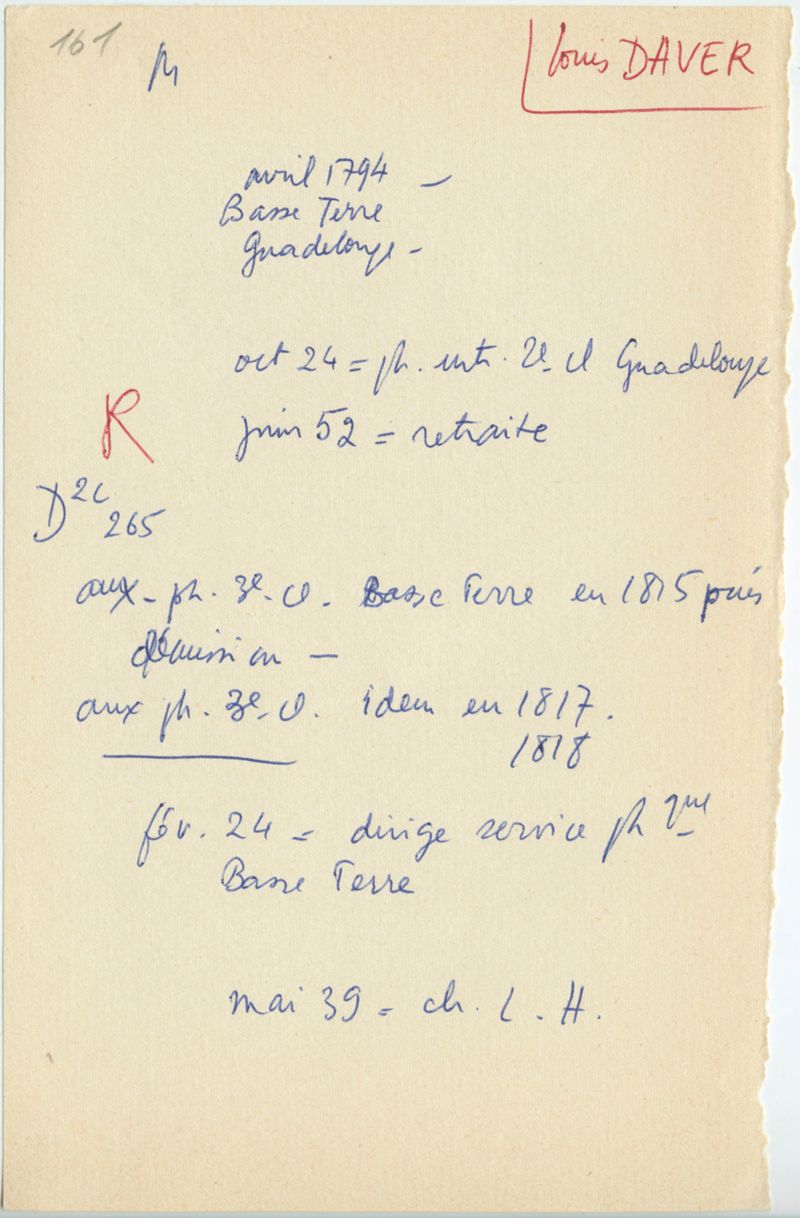 161
ph
Louis DAVER
avril 1794 –
Basse Terre
Guadeloupe –
oct 24 = ph. entr. 2e cl Guadeloupe
R
juin 52 = retraite
D 2c
265
aux – ph. 3e – cl – Basse Terre en 1815 puis
démission –
aux ph. 3e – cl. idem en 1817.
1818
fév. 24 = dirige service ph que
Basse Terre
mai 39 = ch. L. H.